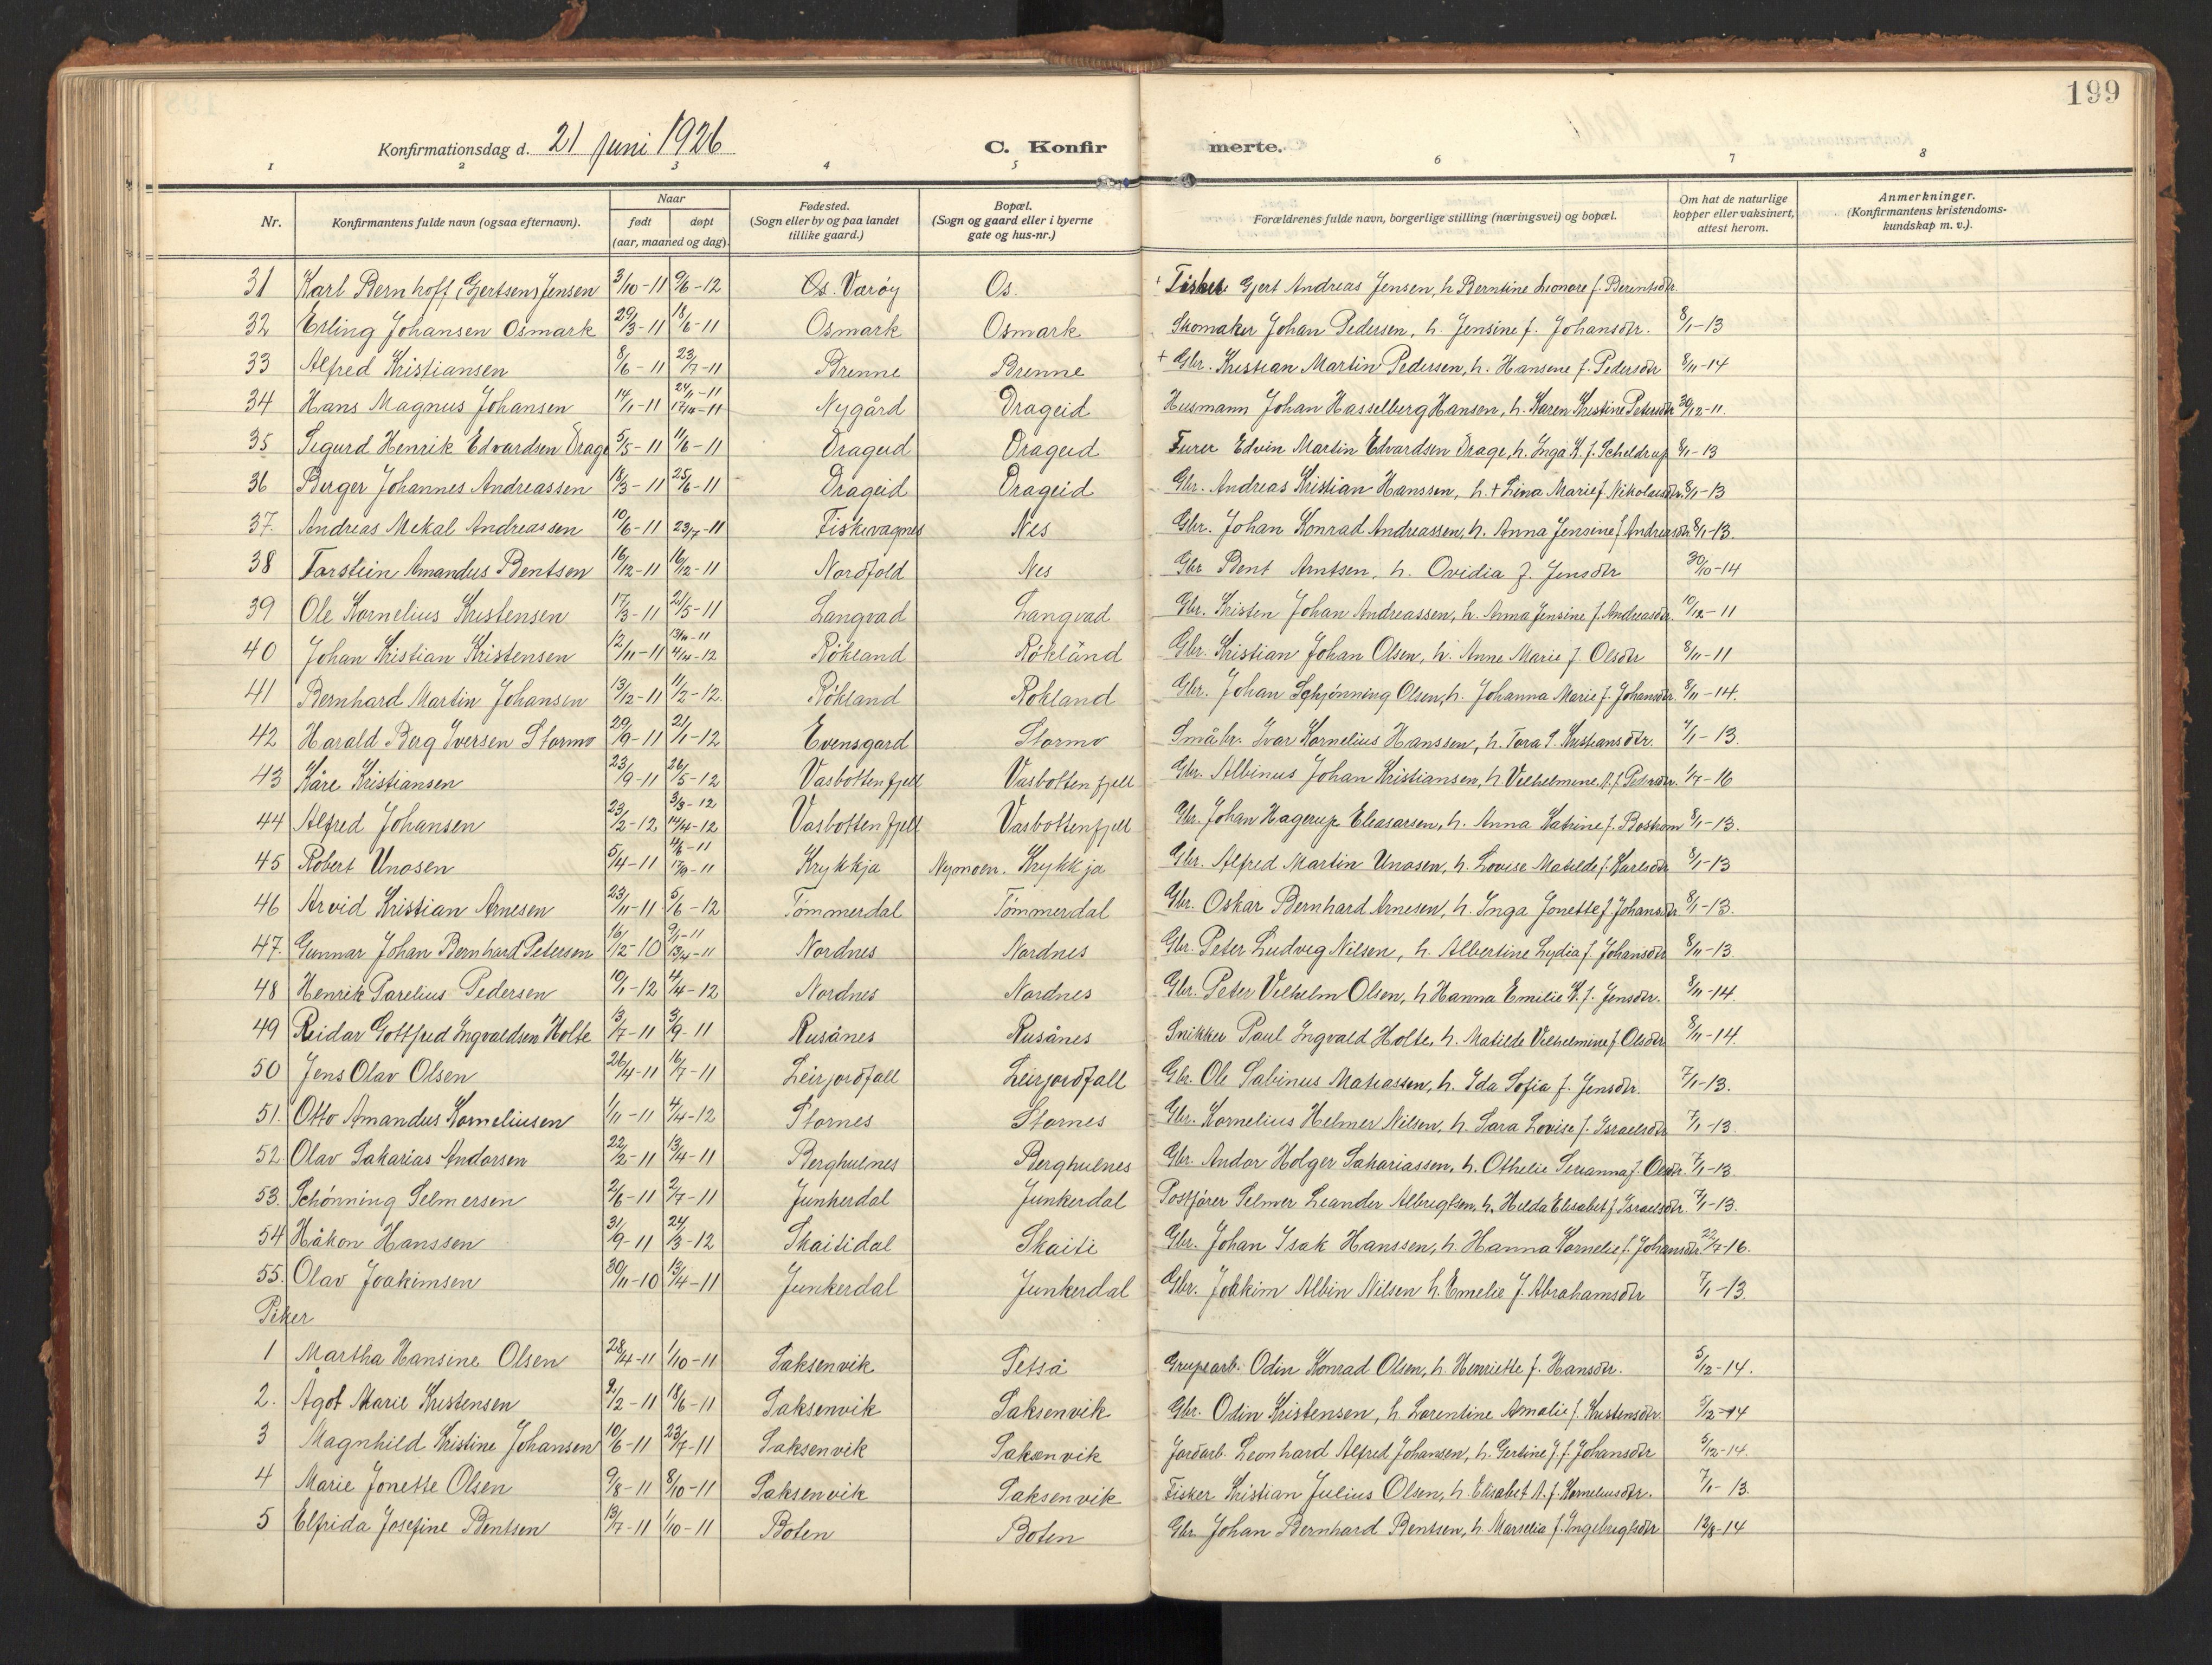 199
Konfirmationsdag d. 21 juni 1926
C. Konfirmerte.
1 2 3 4 5 6 7 8
Nr.
Konfirmantens fulde navn (ogsaa efternavn).
Naar
født døpt
(aar, maaned og dag).
Fødested.
(Sogn eller by og paa landet
tillike gaard.)
Bopæl.
(Sogn og gaard eller i byerne
gate og hus-nr.)
Forældrenes fulde navn, borgerlige stilling (næringsvei) og bopæl.
Om hat de naturlige
kopper eller vaksinert,
attest herom.
Anmerkninger.
(Konfirmantens kristendoms-
kundskap m. v.).
31 Karl Bernhoff (Gertsen) Jensen 3/10-11 9/6-12 Os. Værøy Os. + Fisker Gjert Andreas Jensen, h. Berntine Leonore f. Berentsdtr.
32 Erling Johansen Osmark 29/3-11 18/6-11 Osmark Osmark Skomaker Johan Pedersen, h. Jensine f. Johansdtr. 8/1-13
33 Alfred Kristiansen 8/6-11 23/7-11 Brenne Brenne + Gbr. Kristian Martin Pedersen, h. Hansene f. Pedersdtr 8/11-14
34 Hans Magnus Johansen 14/1-11 24/1-11 17/4-11 Nygård Drageid Husmann Johan Hasselberg Hansen, h. Karen Kristine Petersdtr 30/12-11.
35 Sigurd Henrik Edvardsen Drage 5/5-11 11/6-11 Drageid Drageid Furer Edvin Martin Edvardsen Drage, h. Inga K. f. Scheldrup 8/1-13
36 Birger Johannes Andreassen 18/3-11 25/6-11 Drageid Drageid Gbr. Andreas Kristian Hanssen, h. + Lina Marie f. Nikolaisdtr. 8/1-13
37. Andreas Mekal Andreassen 10/6-11 23/7-11 Fiskevagnes Nes Gbr. Johan Konrad Andreassen, h. Anna Jensine f. Andreasdtr. 8/1-13.
38 Torstein Amandus Bentsen 16/12-11 16/12-11 Nordfold Nes Gbr Bent Arntsen, h. Ovidia f. Jensdtr 30/10-14
39 Ole Kornelius Kristensen 17/3-11 21/5-11 Langvad Langvad Gbr. Kristen Johan Andreassen, h. Anna Jensine f. Andreasdtr. 10/12-11
40 Johan Kristian Kristensen 12/11-11 13/11-11 4/4-12 Røkland Røkland Gbr. Kristian Johan Olsen, h. Anne Marie f. Olsdtr 8/11-11
41 Bernhard Martin Johansen 13/12-11 11/2-12 Røkland Røkland Gbr. Johan Schjønning Olsen, h. Johanna Marie f. Johansdtr. 8/11-14.
42 Harald Berg Iversen Stormo 29/9-11 21/1-12 Evensgard Stormo Småbr. Ivar Kornelius Hanssen, h. Tora S. Kristiansdtr. 7/1-13.
43 Kåre Kristiansen 23/9-11 26/5-12 Vasbottenfjell Vasbottenfjell Gbr. Albinus Johan Kristiansen, h. Vilhelmine A. f. Pedersdtr. 1/7-16
44 Alfred Johansen 23/2-12 3/3-12 14/4-12 Vasbottenfjell Vasbottenfjell Gbr. Johan Hagerup Eleasarsen, h. Anna Katrine f. Bostrøm 8/1-13.
45 Robert Unasen 5/4-11 4/6-11 17/9-11 Krykkja Nymoen. Krykkja Gbr. Alfred Martin Unasen, h. Lovise Matilde f. Karlsdtr 8/1-13
46 Arvid Kristian Arnesen 23/11-11 5/6-12 Tømmerdal Tømmerdal Gbr. Oskar Bernhard Arnesen, h. Inga Jonette f. Johansdtr 8/1-13.
47. Gunnar Johan Bernhard Petersen 16/12-10 9/1-11 13/4-11 Nordnes Nordnes Gbr. Peter Ludvig Nilsen, h. Albertine Lydia f. Johansdtr 8/11-13.
48 Henrik Parelius Pedersen 10/1-12 4/4-12 Nordnes Nordnes Gbr. Peter Vilhelm Olsen, h. Hanna Emilie K. f. Jensdtr. 8/11-14.
49 Reidar Gottfred Ingvaldsen Holte 13/7-11 3/9-11 Rusånes Rusånes Snikker Paul Ingvald Holte, h. Matilde Vilhelmine f. Olsdtr 8/11-14.
50 Jens Olav Olsen 26/4-11 16/7-11 Leirjordfall Leirjordfall Gbr. Ole Sabinus Matiassen, h. Ida Sofia f. Jensdtr. 7/1-13.
51. Otto Amandus Korneliusen 1/11-11 4/4-12 Stornes Stornes Gbr. Kornelius Helmer Nilsen, h. Sara Lovise f. Israelsdtr 7/1-13.
52. Olav Sakarias Andorsen 22/2-11 13/4-11 Berghulnes Berghulnes Gbr. Andor Holger Sakariassen, h. Othelie Serianna f. Olsdtr. 7/1-13.
53. Schønning Selmersen 2/6-11 2/7-11 Junkerdal Junkerdal Postfører Selmer Leander Albrigtsen, h. Hilda Elisabet f. Israelsdtr. 7/1-13.
54 Håkon Hanssen 31/9-11 24/3-12 Skaitidal Skaiti Gbr. Johan Isak Hanssen, h. Hanna Kornelie f. Johansdtr. 22/7-16.
55. Olav Joakimsen 30/11-10 13/4-11 Junkerdal Junkerdal Gbr. Joakim Albin Nilsen h. Emelie f. Abrahamsdtr 7/1-13
Piker
1 Martha Hansine Olsen 28/4-11 1/10-11 Saksenvik Setså Grupearb. Odin Konrad Olsen, h. Henriette f. Hansdtr. 5/12-14.
2. Ågot Marie Kristensen 9/2-11 18/6-11 Saksenvik Saksenvik Gbr. Odin Kristensen, h. Lorentine Amalie f. Kristensdtr. 5/12-14
3 Magnhild Kristine Johansen 10/6-11 23/7-11 Saksenvik Saksenvik Jordarb. Leonhard Alfred Johansen, h. Gertine J. f. Johansdtr 5/12-14.
4 Marie Jonette Olsen 9/8-11 8/10-11 Saksenvik Saksenvik Fisker Kristian Julius Olsen, h. Elisabet A. f. Korneliusdtr. 7/1-13.
5 Elfrida Josefine Bentsen 13/7-11 1/10-11 Boten Boten Gbr Johan Bernhard Bentsen, h. Marselia f. Ingebrigtsdtr 12/8-14